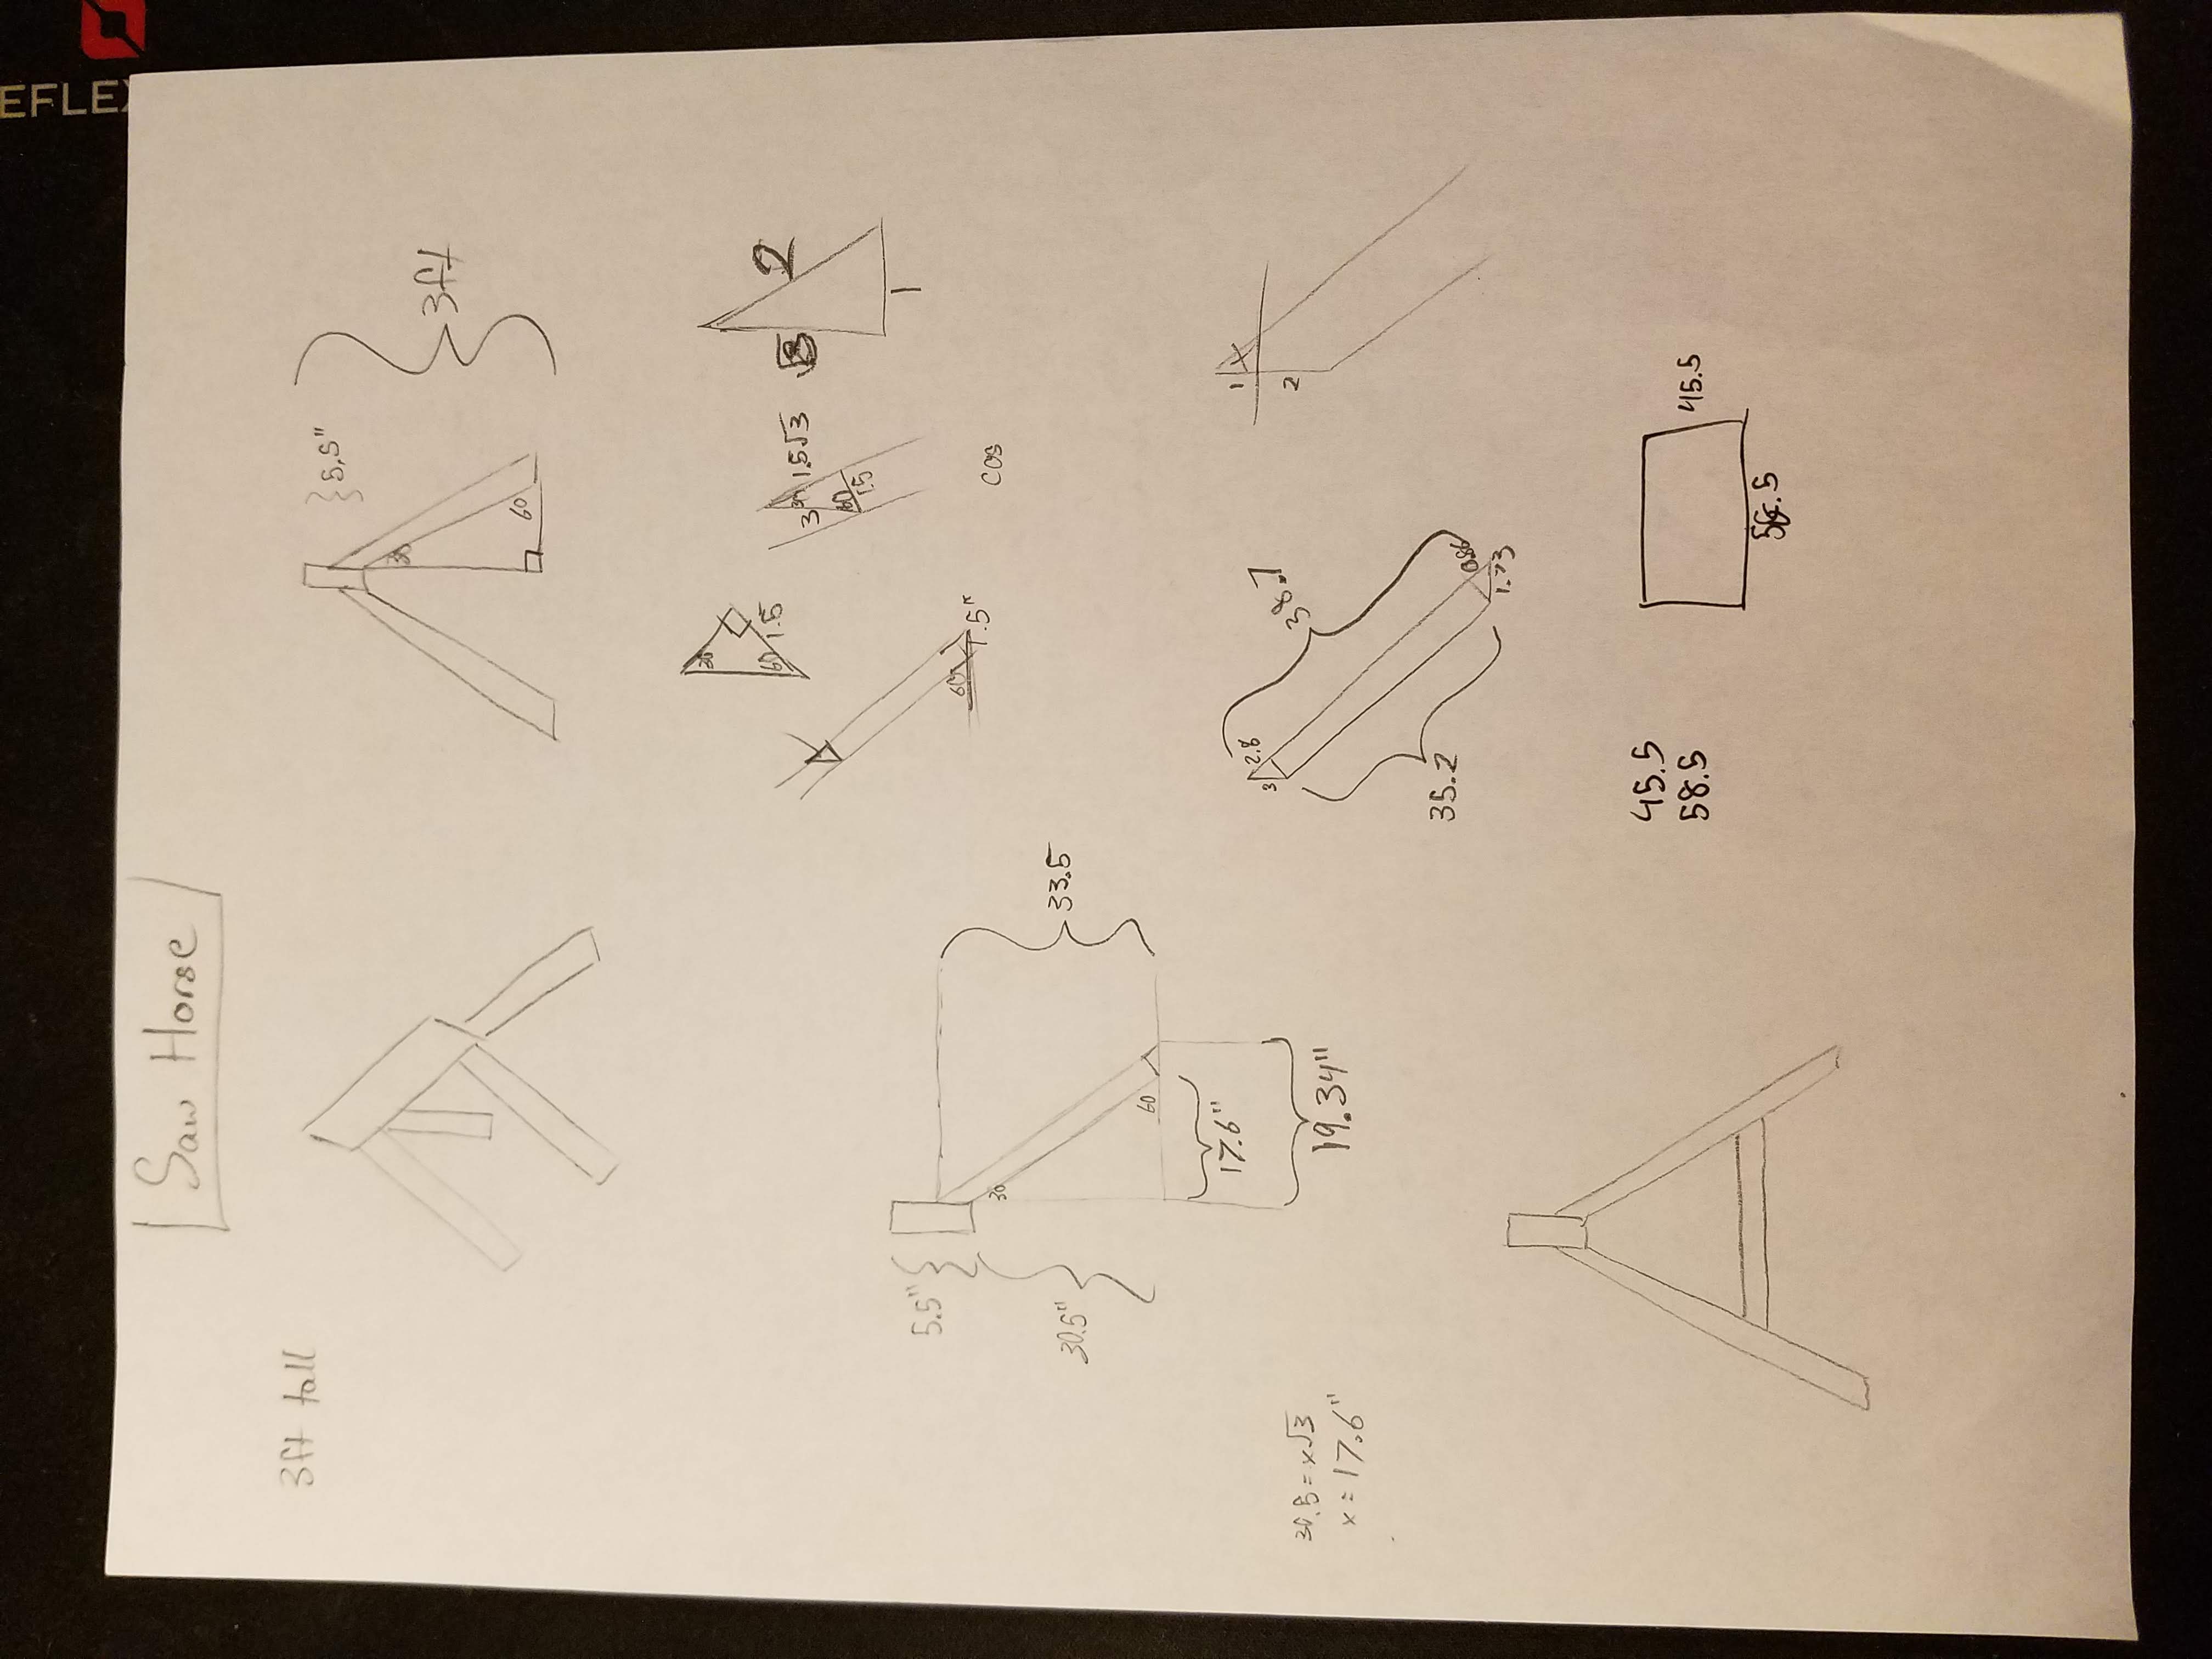 EFLEX
Saw Horse
3ft tall
5.5"
30
60
3ft
30
60
1.5
3
30
1.5√3
60
1.5
√3
2
1
60
1.5"
cos
5.5"
30
30.5"
33.5
60
17.6"
19.34"
30.5 = x√3
x = 17.6"
2.8
3
38.7
35.2
0.86
1.73
1
2
45.5
58.5
45.5